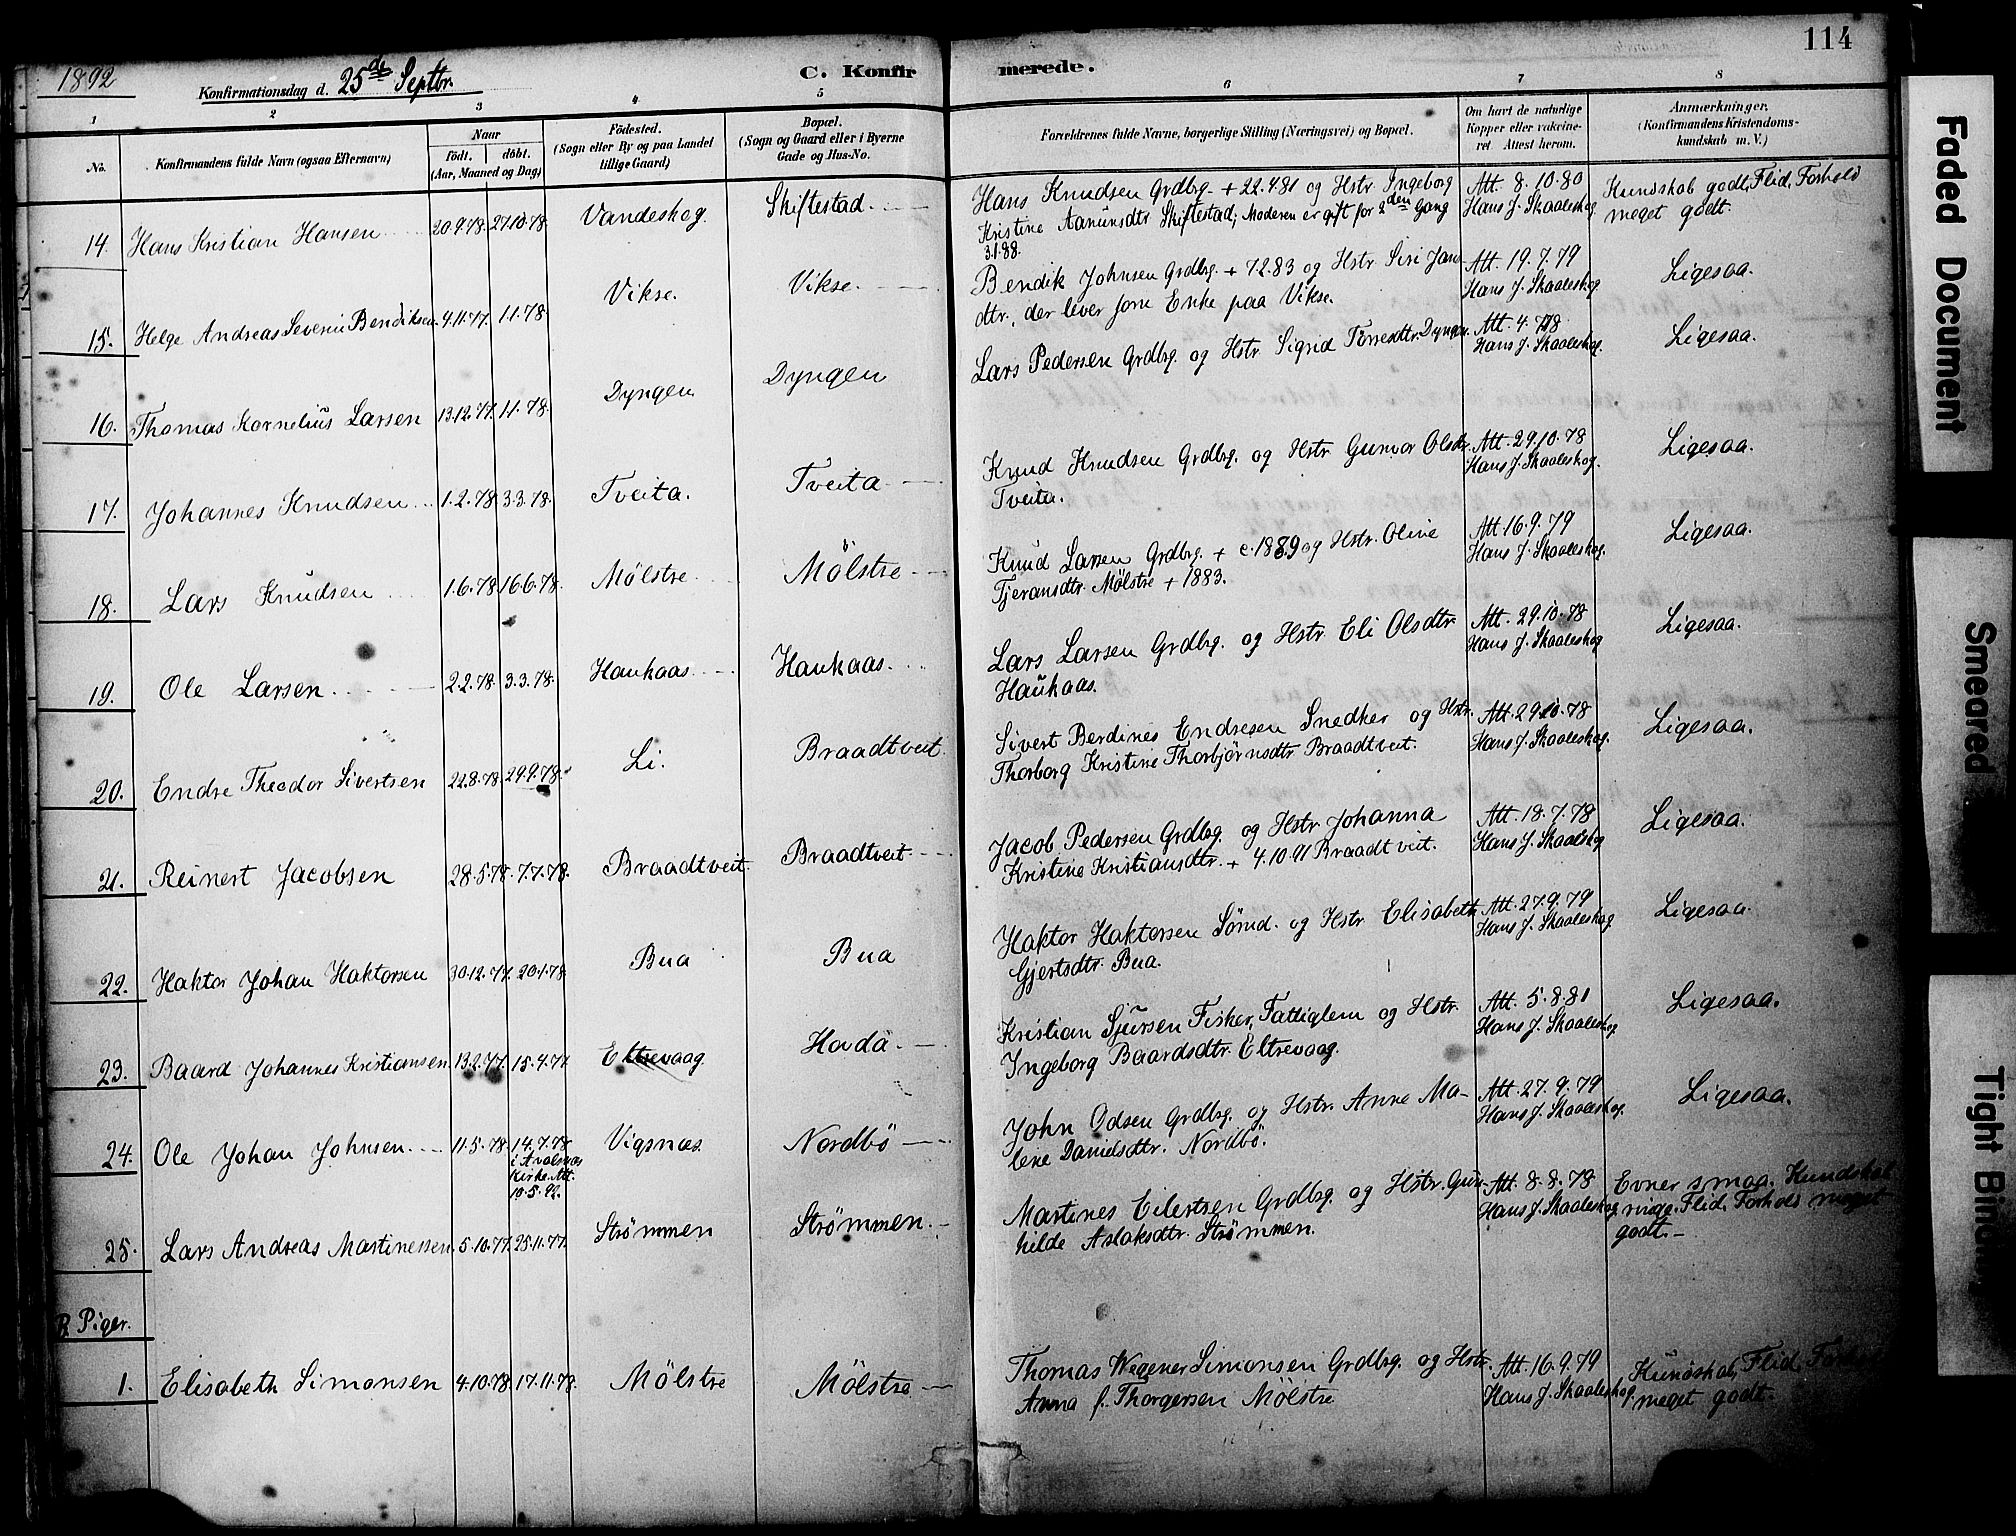 114
1892
Konfirmationsdag d. 25de Septbr.
C. Konfirmerede.
1 2 3 4 5 6 7 8
No.
Konfirmandens fulde Navn (ogsaa Efternavn)
Naar
født. døbt.
(Aar, Maaned og Dag)
Fødested.
(Sogn eller By og paa Landet
tillige Gaard)
Bopæl.
(Sogn og Gaard eller i Byerne
Gade og Hus-No.
Forældrenes fulde Navne, borgerlige Stilling (Næringsvei) og Bopæl.
Om havt de naturlige
Kopper eller vakcine-
ret. Attest herom.
Anmærkninger.
(Konfirmandens Kristendoms-
kundskab m. V.)
14. Hans Kristian Hansen 20.9.78. 27.10.78. Vandeskog. Skiftestad.
Hans Knudsen Grdbrg. + 22.4.81 og Hstr. Ingeborg
Kristine Aanunsdtr Skiftestad; Moderen er gift for 2den Gang
3.1.88.
Att. 8.10.80
Hans J. Skaaleskog
Kundskab godt, Flid, Forhold
meget godt.
15. Helge Andreas Severin Bendiksen 4.11.77. 1.1.78. Vikse. Vikse.
Bendik Johnsen Grdbrg. + 7.2.83 og Hstr. Siri Jans
dtr., der lever som Enke paa Vikse.
Att. 19.7.79
Hans J. Skaaleskog.
Ligesaa.
16. Thomas Kornelius Larsen 13.12.77. 1.1.78. Dyngen Dyngen
Lars Pedersen Grdbrg. og Hstr. Sigrid Tørresdtr. Dyngen.
Att. 4.7.78
Hans J. Skaaleskog.
Ligesaa.
17. Johannes Knudsen 1.2.78. 3.3.78. Tveita. Tveita
Knud Knudsen Grdbrg. og Hstr. Gunvor Olsdtr.
Tveita.
Att. 29.10.78
Hans J. Skaaleskog.
Ligesaa.
18. Lars Knudsen 1.6.78. 16.6.78. Mølstre Mølstre
Knud Larsen Grdbrg. + c. 1889 og Hstr. Oline
Tjeransdtr. Mølstre + 1883.
Att. 16.9.79
Hans J. Skaaleskog.
Ligesaa.
19. Ole Larsen 2.2.78. 3.3.78. Haukaas Haukaas.
Lars Larsen Grdbrg. og Hstr. Eli Olsdtr.
Haukaas.
Att. 29.10.78
Hans J. Skaaleskog
Ligesaa.
20. Endre Theodor Sivertsen 22.8.78. 29.9.78. Li. Braadtveit.
Sivert Berdines Endresen Snedker og Hstr.
Thorborg Kristine Thorbjørnsdtr. Braadtveit.
Att. 29.10.78
Hans J. Skaaleskog.
Ligesaa.
21. Reinert Jacobsen 28.5.78. 7.7.78. Braadtveit. Braadtveit
Jacob Pedersen Grdbrg. og Hstr. Johanna
Kristine Kristiansdtr. + 4.10.91 Braadtveit.
Att. 18.7.78
Hans J. Skaaleskog
Ligesaa.
22. Haktor Johan Haktorsen 30.12.77. 20.1.78. Bua Bua
Haktor Haktorsen Sømd. og Hstr. Elisabeth
Gjertsdtr. Bua.
Att. 27.9.79
Hans J. Skaaleskog
Ligesaa.
23. Baard Johannes Kristiansen 13.2.77. 15.4.77 Eltrevaag Hovda.
Kristian Sjursen Fisker, Fattiglem og Hstr.
Ingeborg Baardsdtr. Eltrevaag.
Att. 5.8.81
Hans J. Skaaleskog
Ligesaa.
24. Ole Johan Johnsen 11.5.78 14.7.78
i Avalsnæs
Kirke. Att.
10.5.92.
Vigsnæs Nordbø
John Odsen Grdbrg. og Hstr. Anne Ma-
lene Danielsdtr. Nordbø.
Att. 27.9.79
Hans J. Skaaleskog.
Ligesaa.
25. Lars Andreas Martinessen 5.10.77. 25.11.77. Strømmen Strømmen.
Martines Eilertsen Grdbrg. og Hstr. Gun-
hilde Aslaksdtr. Strømmen.
Att. 8.8.78
Hans J. Skaaleskog
Evner smaa. Kundskab
nige. Flid, Forhold meget
godt.
B. Piger.
1. Elisabeth Simonsen 4.10.78. 17.11.78. Mølstre Mølstre
Thomas Wegener Simonsen Grdbrg. og Hstr.
Anna f. Thorgersen Mølstre
Att. 16.9.79
Hans J. Skaaleskog.
Kundskab, Flid, Forhold
meget godt.
Faded Document
Smeared
Tight Bindin